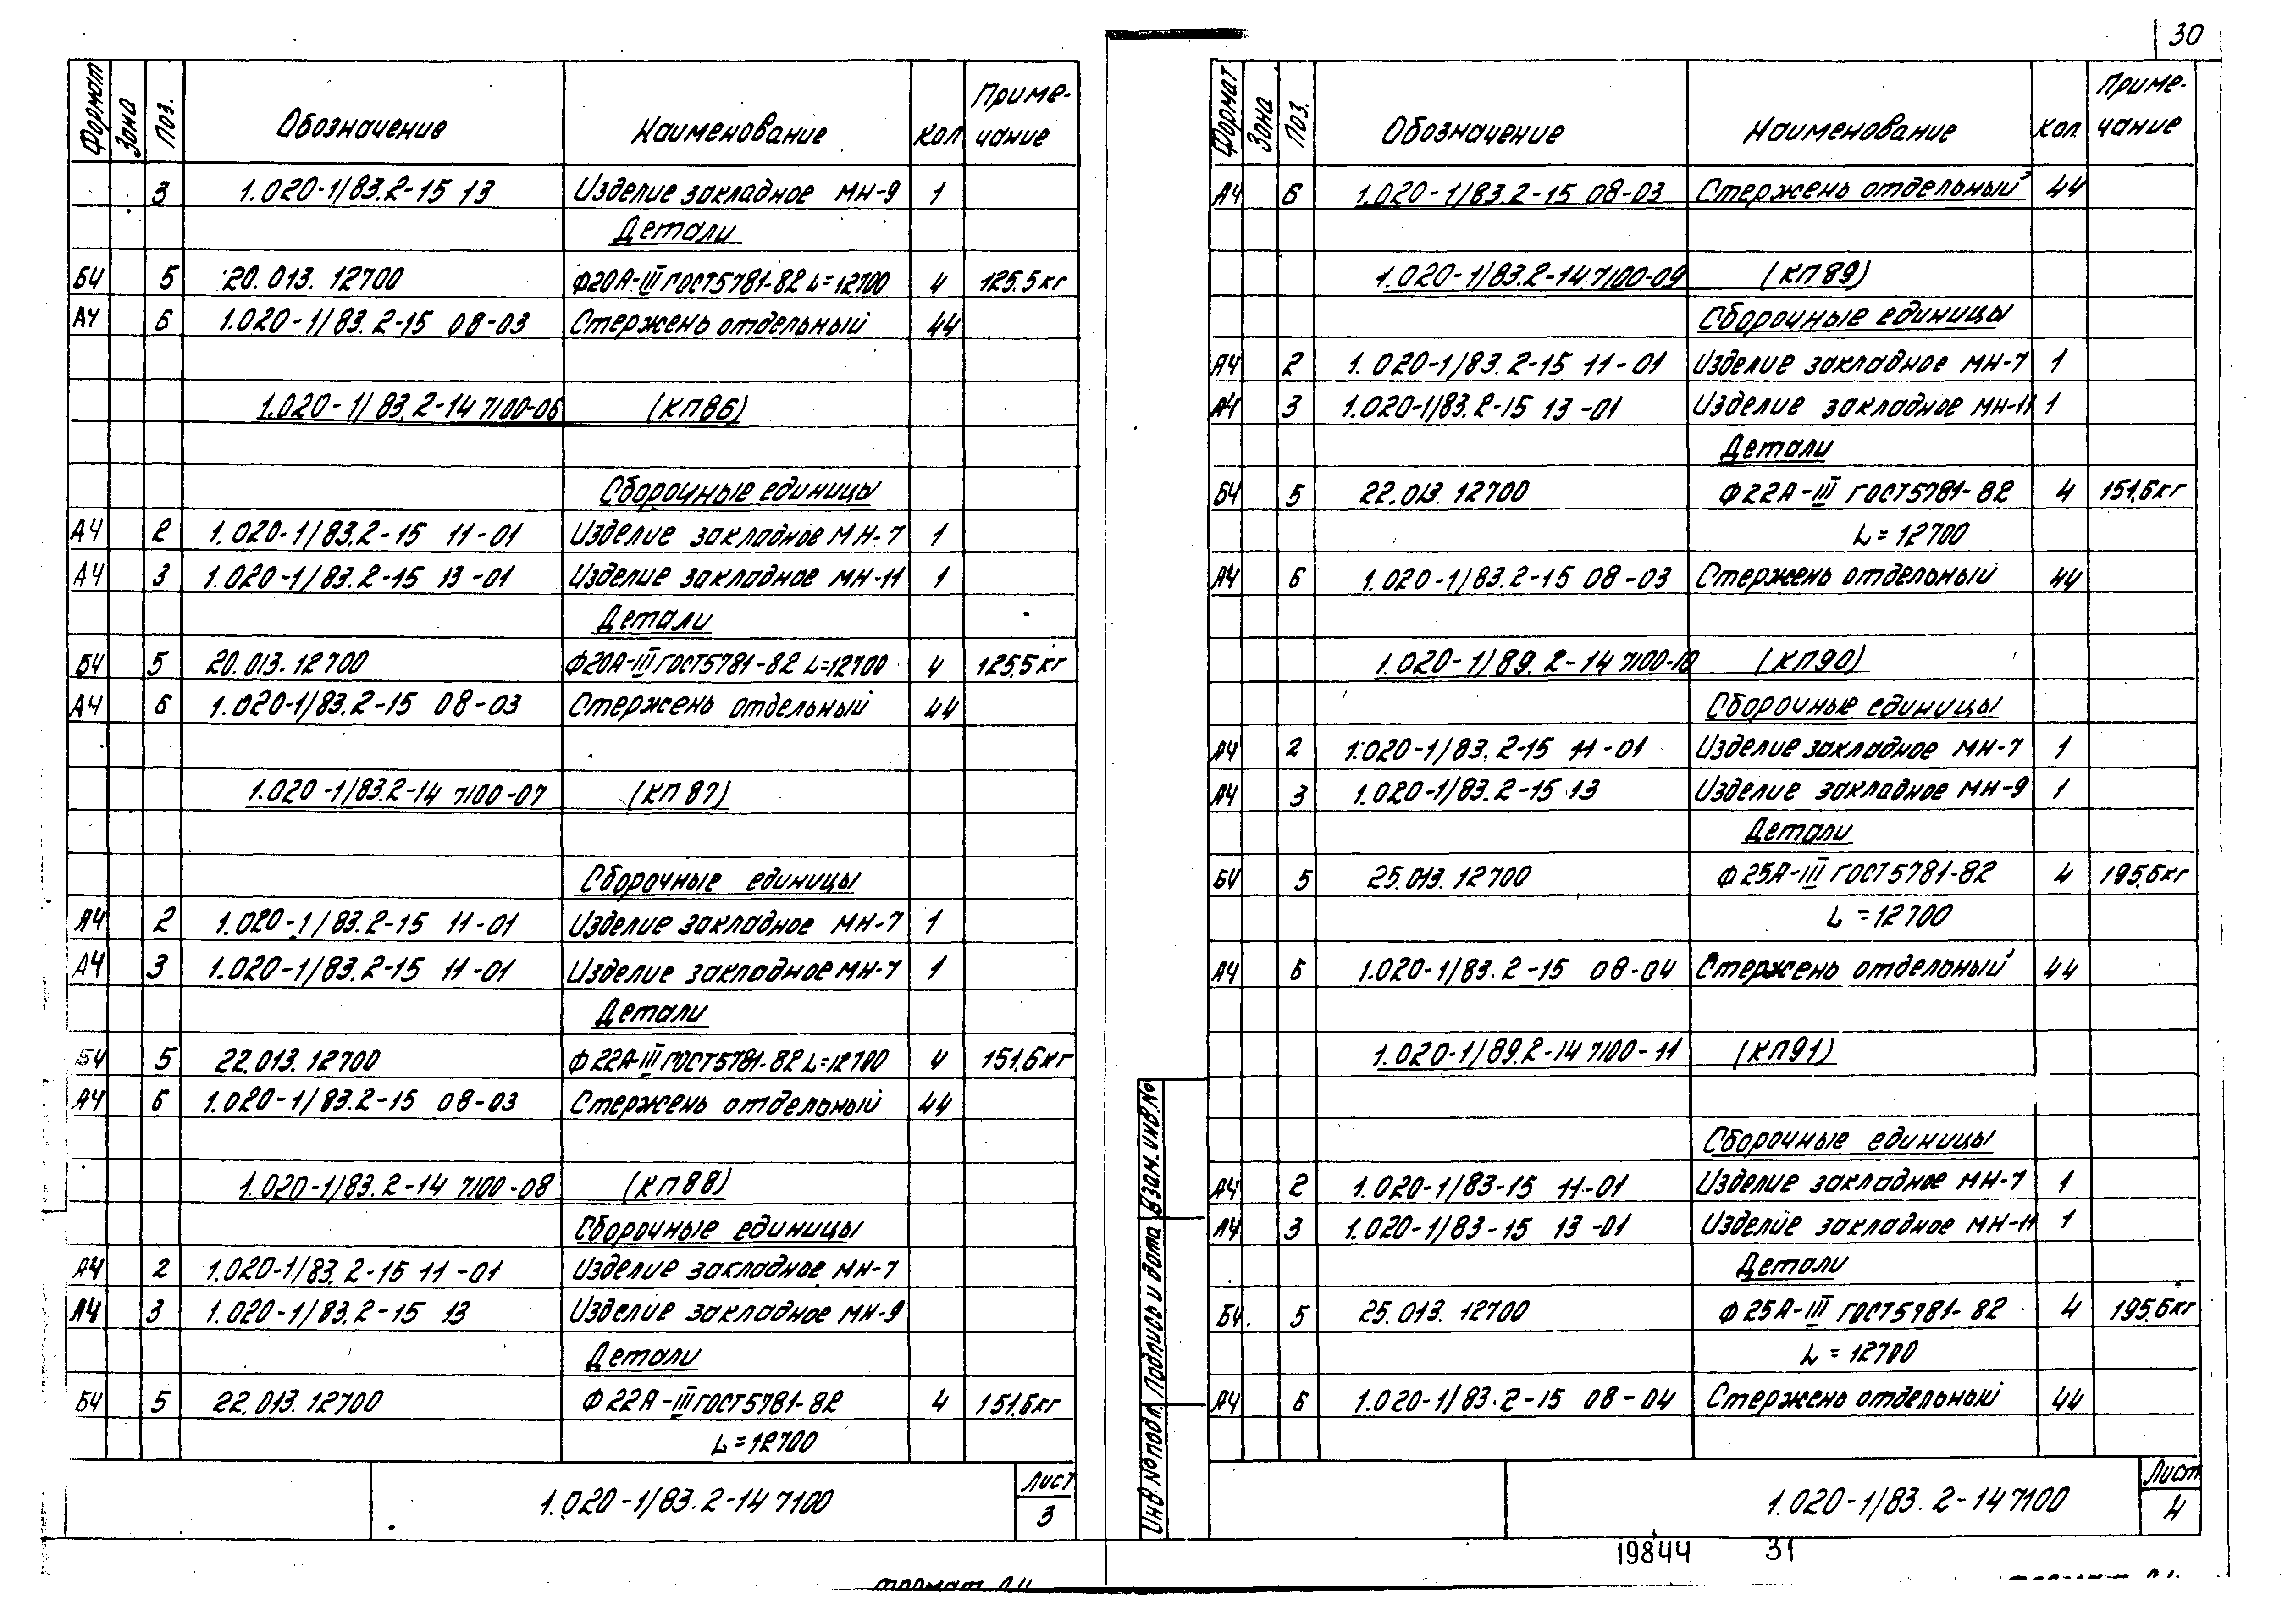 30
Формат Зона Поз. Обозначение Наименование Кол Приме-
чание
3 1.020-1/83.2-15 13 Изделие закладное МН-9 1
Детали
БЧ 5 20.013.12700 Ф20А-III ГОСТ5781-82 L=12700 4 125.5кг
А4 6 1.020-1/83.2-15 08-03 Стержень отдельный 44
1.020-1/83.2-14 7100-06 (КП86)
Сборочные единицы
А4 2 1.020-1/83.2-15 11-01 Изделие закладное МН-7 1
А4 3 1.020-1/83.2-15 13-01 Изделие закладное МН-11 1
Детали
БЧ 5 20.013.12700 Ф20А-III ГОСТ5781-82 L=12700 4 125,5кг
А4 6 1.020-1/83.2-15 08-03 Стержень отдельный 44
1.020-1/83.2-14 7100-07 (КП87)
Сборочные единицы
А4 2 1.020-1/83.2-15 11-01 Изделие закладное МН-7 1
А4 3 1.020-1/83.2-15 11-01 Изделие закладное МН-7 1
Детали
БЧ 5 22.013.12700 Ф22А-III ГОСТ5781-82 L=12700 4 151,6кг
А4 6 1.020-1/83.2-15 08-03 Стержень отдельный 44
1.020-1/83.2-14 7100-08 (КП88)
Сборочные единицы
А4 2 1.020-1/83.2-15 11-01 Изделие закладное МН-7
А4 3 1.020-1/83.2-15 13 Изделие закладное МН-9
Детали
БЧ 5 22.013.12700 Ф22А-III ГОСТ5781-82 4 151,6кг
L=12700
1.020-1/83.2-14 7100 Лист
3
Формат Зона Поз. Обозначение Наименование Кол Приме-
чание
А4 6 1.020-1/83.2-15 08-03 Стержень отдельный 44
1.020-1/83.2-14 7100-09 (КП89)
Сборочные единицы
А4 2 1.020-1/83.2-15 11-01 Изделие закладное МН-7 1
А4 3 1.020-1/83.2-15 13-01 Изделие закладное МН-11 1
Детали
БЧ 5 22.013.12700 Ф22А-III ГОСТ5781-82 4 151,6кг
L=12700
А4 6 1.020-1/83.2-15 08-03 Стержень отдельный 44
1.020-1/89.2-14 7100-10 (КП90)
Сборочные единицы
А4 2 1.020-1/83.2-15 11-01 Изделие закладное МН-7 1
А4 3 1.020-1/83.2-15 13 Изделие закладное МН-9 1
Детали
БЧ 5 25.013.12700 Ф25А-III ГОСТ5781-82 4 195,6кг
L=12700
А4 6 1.020-1/83.2-15 08-04 Стержень отдельный 44
1.020-1/89.2-14 7100-11 (КП91)
Сборочные единицы
А4 2 1.020-1/83-15 11-01 Изделие закладное МН-7 1
А4 3 1.020-1/83-15 13-01 Изделие закладное МН-11 1
Детали
БЧ. 5 25.013.12700 Ф25А-III ГОСТ5981-82 4 195,6кг
L=12700
А4 6 1.020-1/83.2-15 08-04 Стержень отдельный 44
Инв.№подл. Подпись и дата Взам.инв.№
1.020-1/83.2-14 7100 Лист
4
19844 31